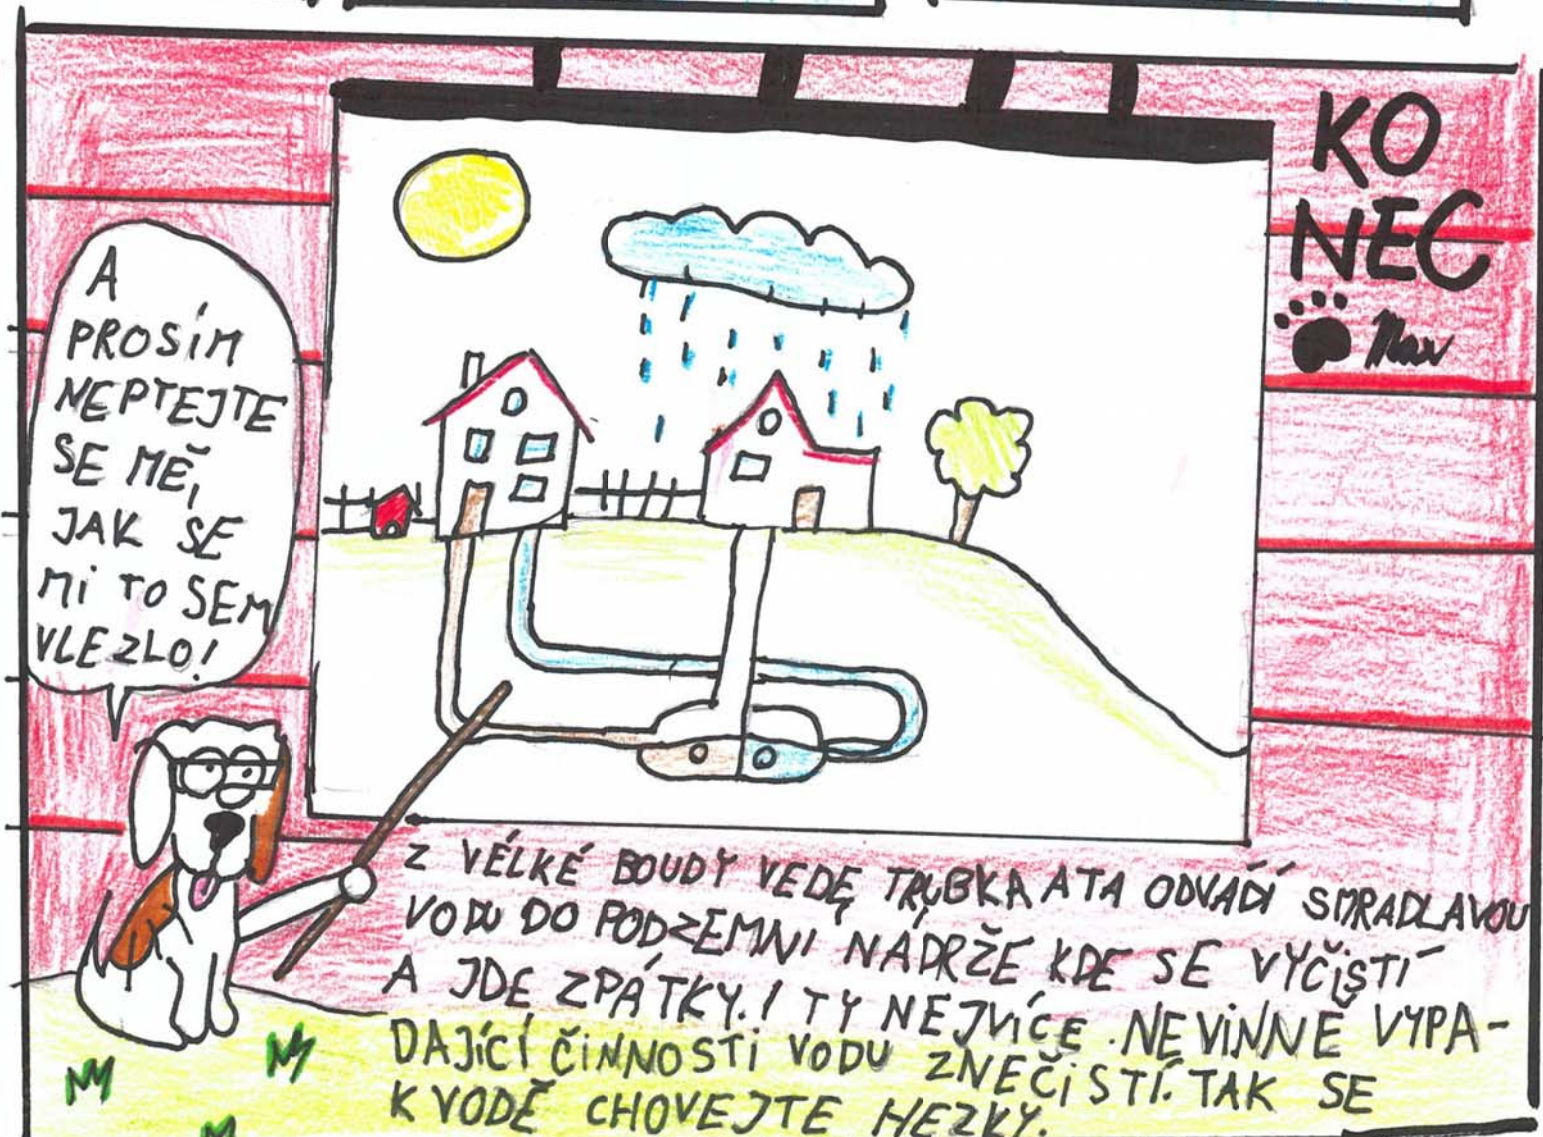 A
PROSÍM
NEPTEJTE
SE MĚ,
JAK SE
MI TO SEM
VLEZLO!
KO
NEC
Max
Z VÉLKÉ BOUDY VEDE TRUBKA A TA ODVÁDÍ SMRADLAVOU
VODU DO PODZEMNÍ NÁDRŽE KDE SE VYČISTÍ
A JDE ZPÁTKY.! TY NEJVÍCE NEVINNĚ VYPA-
DAJÍCÍ ČINNOSTI VODU ZNEČISTÍ. TAK SE
K VODĚ CHOVEJTE HEZKY.